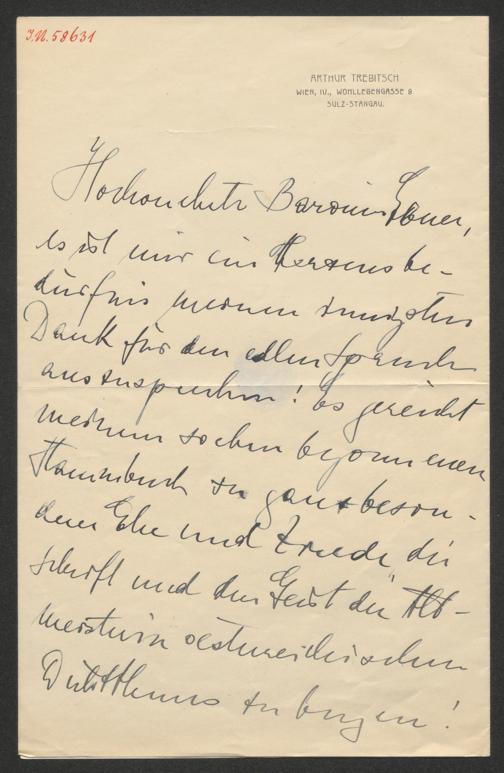 I.N. 58631
ARTHUR TREBITSCH
WIEN, IV., WOHLLEBENGASSE 9
SULZ-STANGAU.
Hochverehrte Baronin Ebner,
es ist mir ein Herzensbe-
dürfnis meinen innigsten
Dank für den edlen Spruch
auszusprechen! Es gereicht
meinem soeben begonnenen
Stammbuch zu ganz beson-
derer Ehre und Freude, die
Schrift und den Geist der Alt-
meisterin oestereichischen
Dichtthums zu bergen!